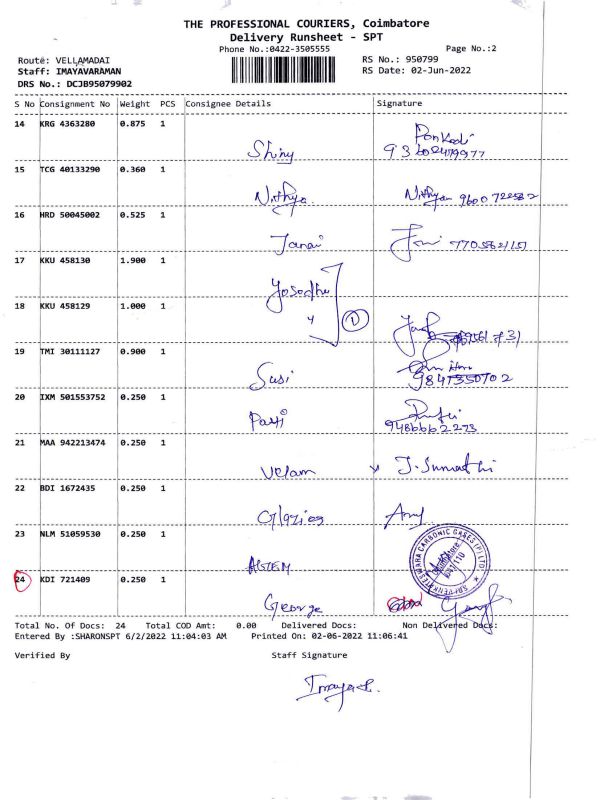 THE PROFESSIONAL COURIERS, Coimbatore
Delivery Runsheet - SPT
Phone No.:0422-3505555
Page No.:2
Route: VELLAMADAI
RS No.: 950799
Staff: IMAYAVARAMAN
RS Date: 02-Jun-2022
DRS No.: DCJB95079902
S No Consignment No Weight PCS Consignee Details Signature
14 KRG 4363280 0.875 1
Shiny
15 TCG 40133290 0.360 1
Nithya
16 HRD 50045002 0.525 1
Janai
17 KKU 458130 1.900 1
Yosodha
18 KKU 458129 1.000 1
19 TMI 30111127 0.900 1
Susi
20 IXM 501553752 0.250 1
9486662273
21 MAA 942213474 0.250 1
Velam J. Sumathi
22 BDI 1672435 0.250 1
23 NLM 51059530 0.250 1
24 KDI 721409 0.250 1
George
Total No. Of Docs: 24 Total COD Amt: 0.00 Delivered Docs: Non Delivered Docs:
Entered By :SHARONSPT 6/2/2022 11:04:03 AM Printed On: 02-06-2022 11:06:41
Verified By Staff Signature